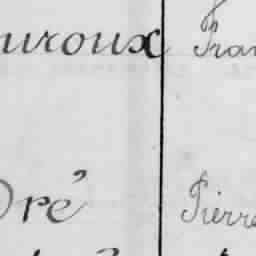 uroux Fran
Dré Pierre